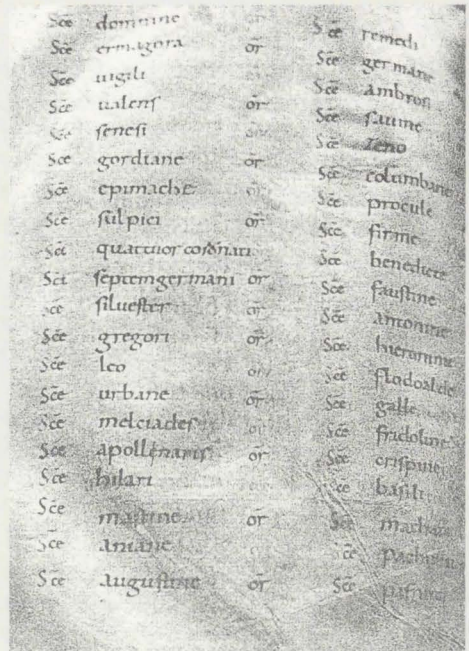 Sc̄e domnine
Sc̄e ermagora or̄
Sc̄e uigili
Sc̄e ualens or̄
Sc̄e senesi or̄
Sc̄e gordiane or̄
Sc̄e epimache or̄
Sc̄e sulpici or̄
Sc̄i quattuor coronati
Sc̄i septem germani or̄
Sc̄e siluester or̄
Sc̄e gregori or̄
Sc̄e leo or̄
Sc̄e urbane or̄
Sc̄e melciades or̄
Sc̄e apollenaris or̄
Sc̄e hilari
Sc̄e martine or̄
Sc̄e aniane or̄
Sc̄e augustine or̄
Sc̄e remedi
Sc̄e germane
Sc̄e ambrosi
Sc̄e sauine
Sc̄e zeno
Sc̄e columbane
Sc̄e procule
Sc̄e firme
Sc̄e benedicte
Sc̄e faustine
Sc̄e antonine
Sc̄e hieronime
Sc̄e flodoalde
Sc̄e galle
Sc̄e fridoline
Sc̄e crispine
Sc̄e basili
Sc̄e
Sc̄e
Sc̄e